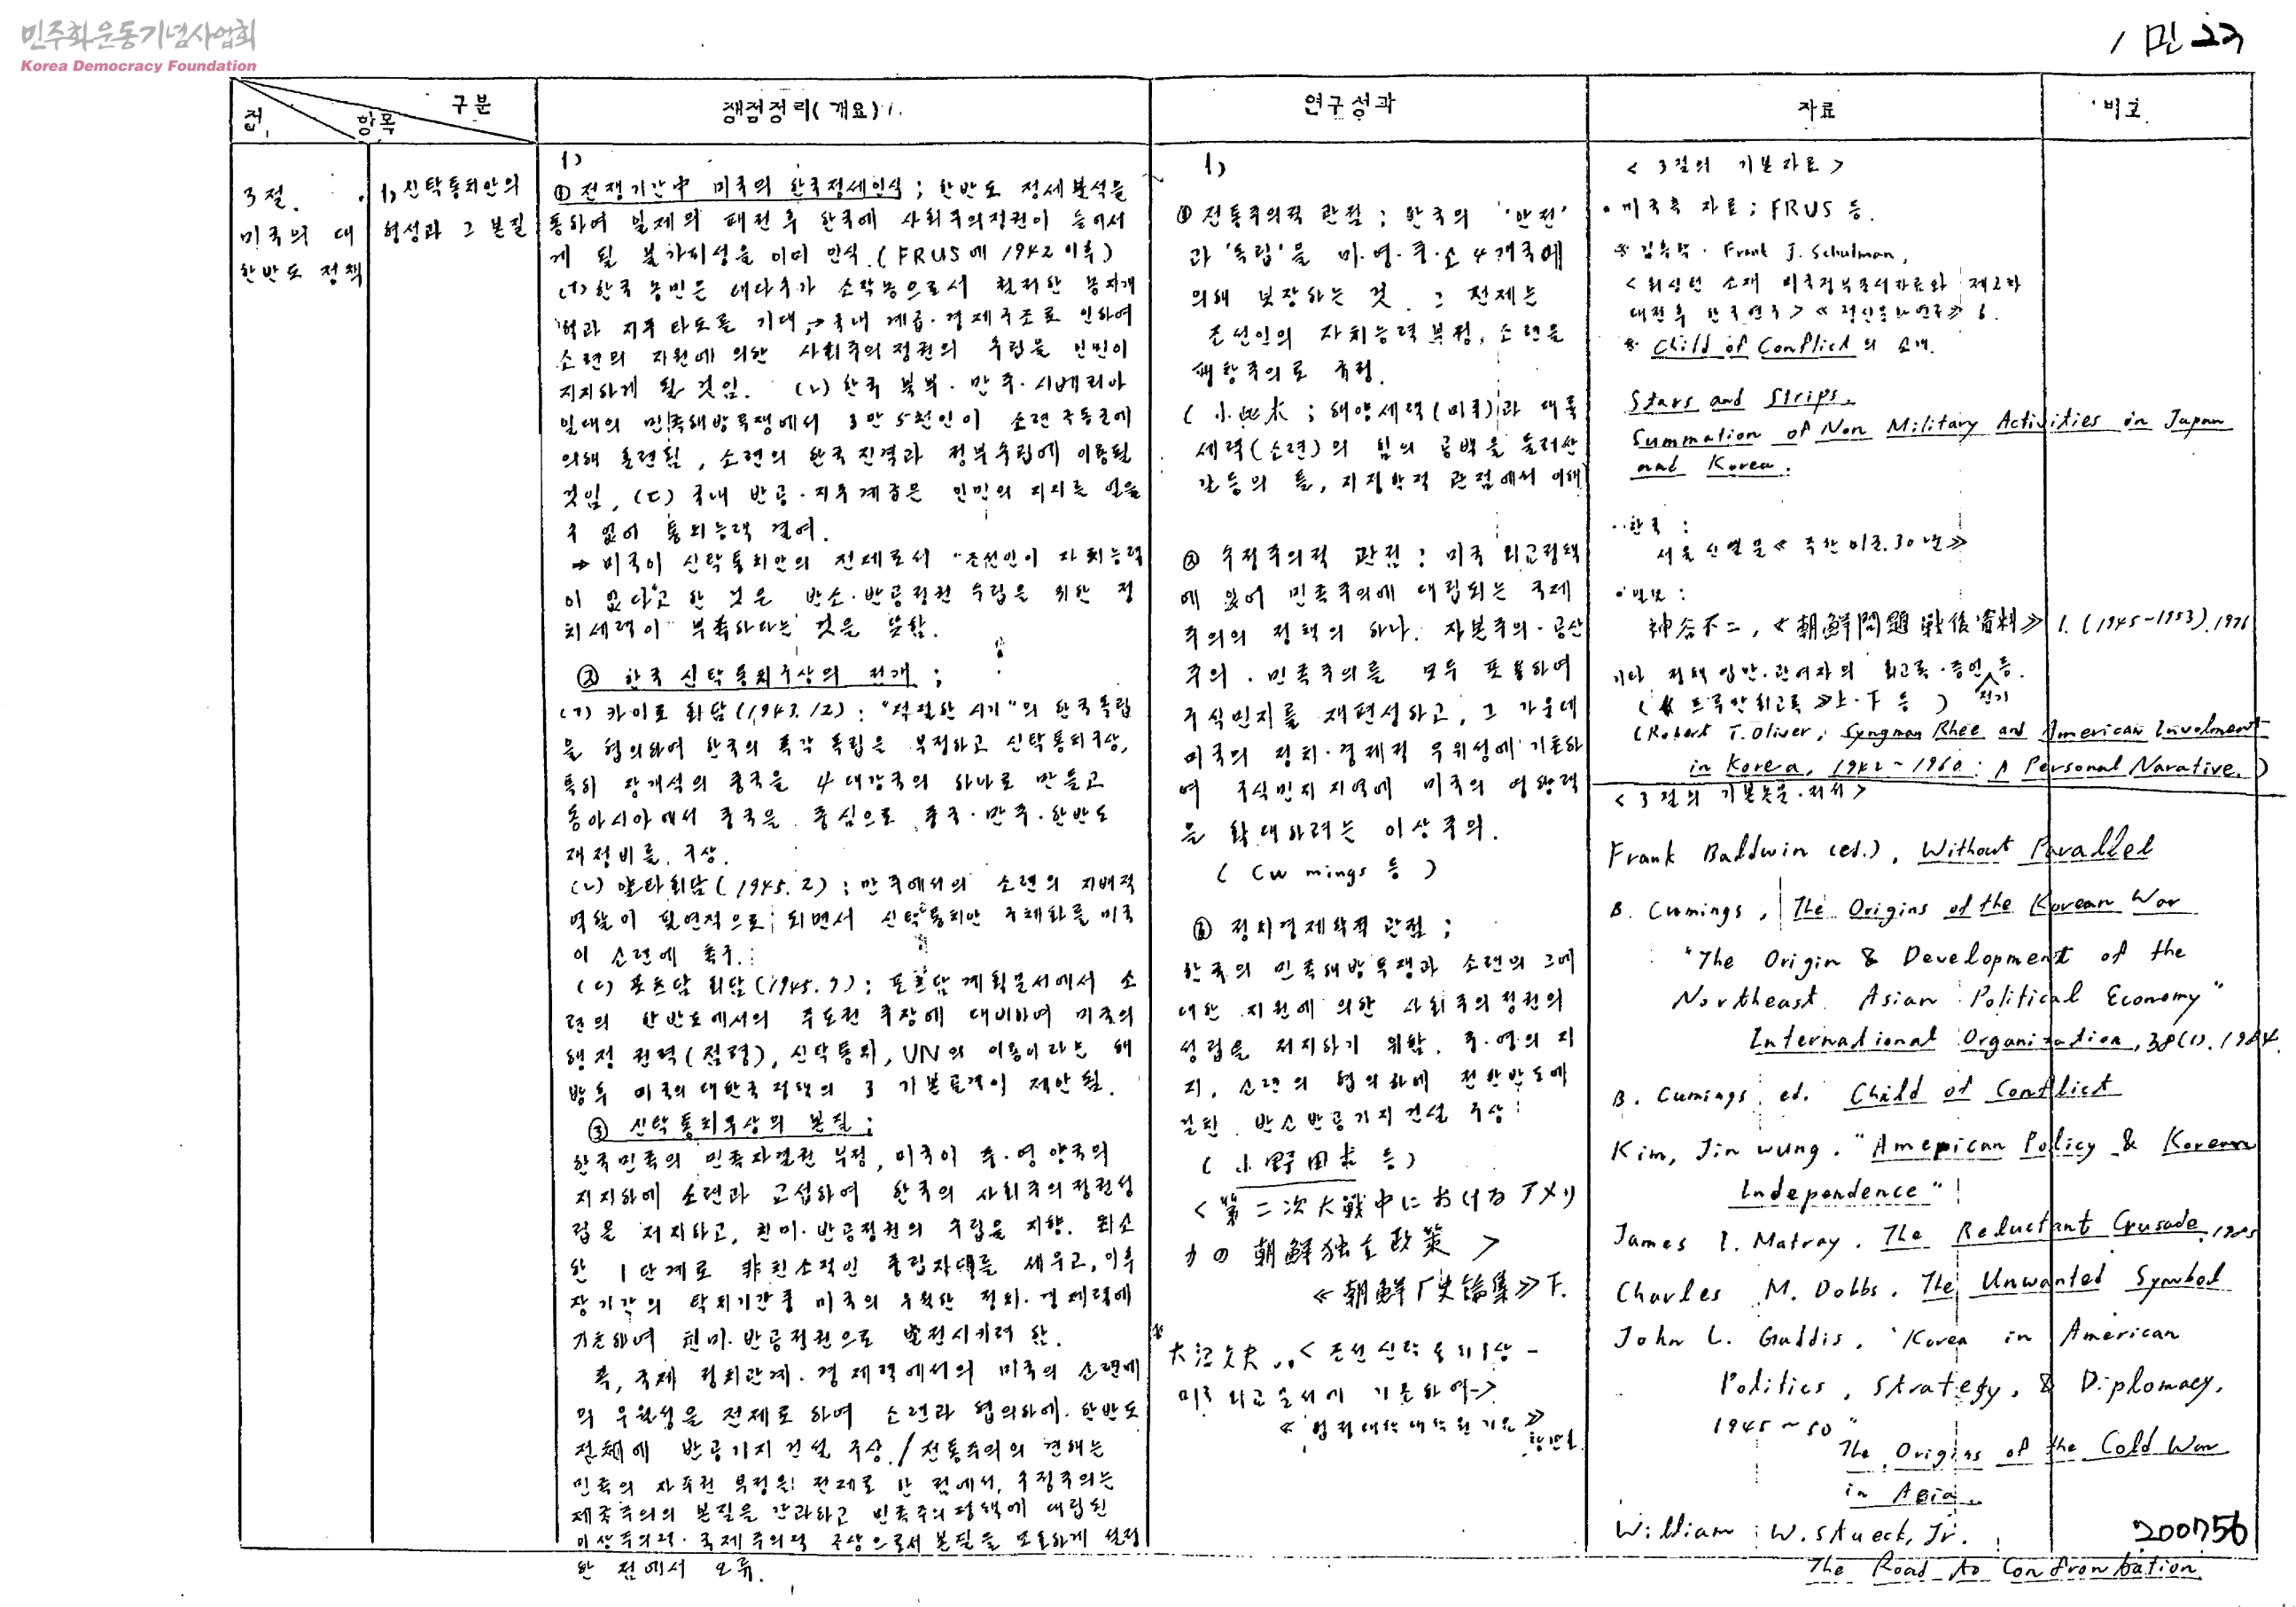 민주화운동기념사업회
Korea Democracy Foundation
1 민 23
구분
절
항목
쟁점정리(개요)
연구성과
자료
비고
3절.
미국의 대
한반도 정책
1) 신탁통치안의
형성과 그 본질
1)
① 전쟁기간中 미국의 한국정세인식 ; 한반도 정세분석을
통하여 일제의 패전 후 한국에 사회주의정권이 들어서
게 될 불가피성을 이미 인식. (FRUS에 1942 이후)
(ㄱ) 한국 농민은 대다수가 소작농으로서 철저한 농지개
혁과 지주 타도를 기대, → 국내 계급·경제구조로 인하여
소련의 지원에 의한 사회주의정권의 수립을 인민이
지지하게 될 것임. (ㄴ) 한국 북부·만주·시베리아
일대의 민족해방투쟁에서 3만 5천인이 소련 극동군에
의해 훈련됨, 소련의 한국진격과 정부수립에 이용될
것임, (ㄷ) 국내 반공·지주계급은 인민의 지지를 얻을
수 없어 통치능력 결여.
→ 미국이 신탁통치안의 전제로서 "조선인이 자치능력
이 없다"고 한 것은 반소·반공정권 수립을 위한 정
치세력이 부족하다는 것을 뜻함.
② 한국 신탁통치구상의 전개 ;
(ㄱ) 카이로 회담(1943.12) : "적절한 시기"의 한국독립
을 협의하여 한국의 즉각 독립은 부정하고 신탁통치구상,
특히 장개석의 중국을 4대강국의 하나로 만들고
동아시아에서 중국을 중심으로 중국·만주·한반도
재정비를 구상.
(ㄴ) 얄타회담(1945.2) ; 만주에서의 소련의 지배적
역할이 필연적으로 되면서 신탁통치안 구체화를 미국
이 소련에 촉구.
(ㄷ) 포츠담 회담(1945.7) ; 포츠담계획문서에서 소
련의 한반도에서의 주도권 주장에 대비하여 미국의
행정 권력(점령), 신탁통치, UN의 이용이라는 해
방후 미국의 대한국정책의 3 기본골격이 제안됨.
③ 신탁통치구상의 본질 ;
한국민족의 민족자결권 부정, 미국이 중·영 양국의
지지하에 소련과 교섭하여 한국의 사회주의정권성
립을 저지하고, 친미·반공정권의 수립을 지향. 최소
한 1단계로 非친소적인 중립지대를 세우고, 이후
장기간의 탁치기간중 미국의 우월한 정치·경제력에
기초하여 친미·반공정권으로 발전시키려 한.
즉, 국제 정치관계·경제력에서의 미국의 소련에
의 우월성을 전제로 하여 소련과 협의하에 한반도
전체에 반공기지 건설 구상. / 전통주의의 견해는
민족의 자주권 부정을 전제로 한 점에서, 수정주의는
제국주의의 본질을 간과하고 민족주의정책에 대립된
이상주의적·국제주의적 구상으로서 본질을 모호하게 설정
한 점에서 오류.
1)
① 전통주의적 관점 ; 한국의 '안전'
과 '독립'을 미·영·중·소 4개국에
의해 보장하는 것. 그 전제는
조선인의 자치능력 부정, 소련을
팽창주의로 규정.
( 小此木 ; 해양세력(미국)과 대륙
세력(소련)의 힘의 공백을 둘러싼
갈등의 틀, 지정학적 관점에서 이해)
② 수정주의적 관점 : 미국 외교정책
에 있어 민족주의에 대립되는 국제
주의의 정책의 하나. 자본주의·공산
주의·민족주의를 모두 포용하여
구식민지를 재편성하고, 그 가운데
미국의 정치·경제적 우위성에 기초하
여 구식민지 지역에 미국의 영향력
을 확대하려는 이상주의.
( Cumings 등 )
③ 정치경제학적 관점 ;
한국의 민족해방투쟁과 소련의 그에
대한 지원에 의한 사회주의정권의
성립을 저지하기 위함. 중·영의 지
지, 소련의 협의하에 전한반도에
걸친 반소반공기지건설 구상
( 小野田求 등 )
< 第二次大戦中におけるアメリ
カの 朝鮮独立政策 >
≪ 朝鮮厂史論集 ≫ 下.
大沼久夫, < 조선신탁통치구상 -
미국외교문서에 기초하여 - >
< 3절의 기본자료 >
• 미국측 자료 ; FRUS 등.
Frank J. Schulman,
< 워싱턴 소재 미국정부문서자료와 제2차
대전후 한국연구 > ≪ 정신문화연구 ≫ 6.
※ Child of Conflict의 소개.
Stars and Strips.
Summation of Non Military Activities in Japan
and Korea.
• 한국 :
서울신문 ≪ 주한미군 30년 ≫
• 일본 :
神谷不二, ≪ 朝鮮問題戦後資料 ≫ 1. (1945~1953). 1976
기타 정책 입안·관여자의 회고록·증언 등.
전기
( ≪ 트루만회고록 ≫ 上·下 등 )
(Robert T. Oliver, Syngman Rhee and American Involment
in Korea, 1942~1960 : A Personal Narative.)
< 3절의 기본논문·저서 >
Frank Baldwin (ed.), Without Parallel
B. Cumings, The Origins of the Korean War
"The Origin & Development of the
Northeast Asian Political Economy"
International Organization, 38(1). 1984.
B. Cumings ed. Child of Conflict
Kim, Jin wung. "American Policy & Korean
Independence"
James I. Matray. The Reluctant Crusade, 1985
Charles M. Dobbs. The Unwanted Symbol
John L. Gaddis. 'Korea in American
Politics, Strategy, & Diplomacy,
1945~50"
The Origins of the Cold War
in Asia.
William W. Stueck, Jr.
The Road to Confrontation
200756